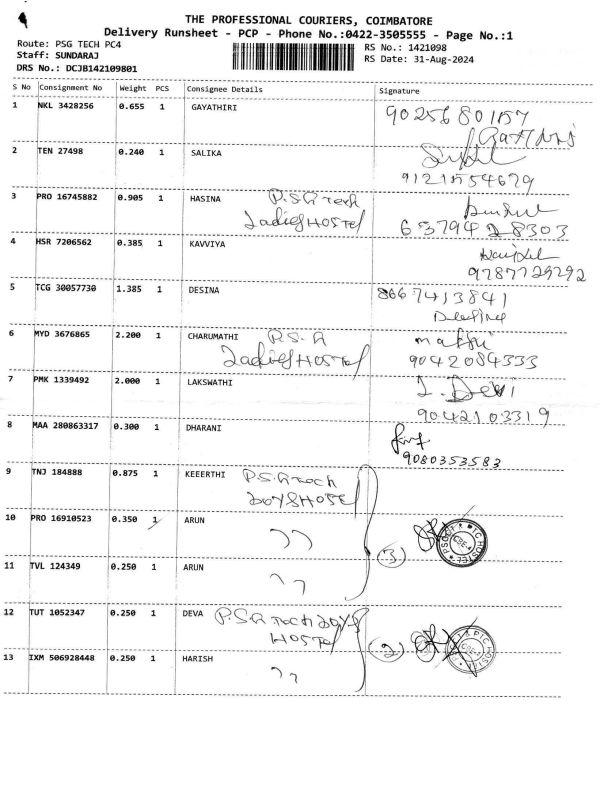 THE PROFESSIONAL COURIERS, COIMBATORE
Delivery Runsheet - PCP - Phone No.:0422-3505555 - Page No.:1
Route: PSG TECH PC4
RS No.: 1421098
Staff: SUNDARAJ
RS Date: 31-Aug-2024
DRS No.: DCJB142109801
S No Consignment No Weight PCS Consignee Details Signature
1 NKL 3428256 0.655 1 GAYATHIRI
2 TEN 27498 0.240 1 SALIKA
3 PRO 16745882 0.905 1 HASINA P.S.G Tech
Ladies HOSTEL
63794 28303
4 HSR 7206562 0.385 1 KAVVIYA
9787729292
5 TCG 30057730 1.385 1 DESINA 8667413841
6 MYD 3676865 2.200 1 CHARUMATHI P.S.G
Ladies HOSTEL
9042084333
7 PMK 1339492 2.000 1 LAKSWATHI
9042103319
8 MAA 280863317 0.300 1 DHARANI
9080353583
9 TNJ 184888 0.875 1 KEEERTHI P.S.G Tech
BOYS HOSTEL
10 PRO 16910523 0.350 1 ARUN
(3)
11 TVL 124349 0.250 1 ARUN
12 TUT 1052347 0.250 1 DEVA P.S.G Tech BOYS
HOSTEL
(2)
13 IXM 506928448 0.250 1 HARISH